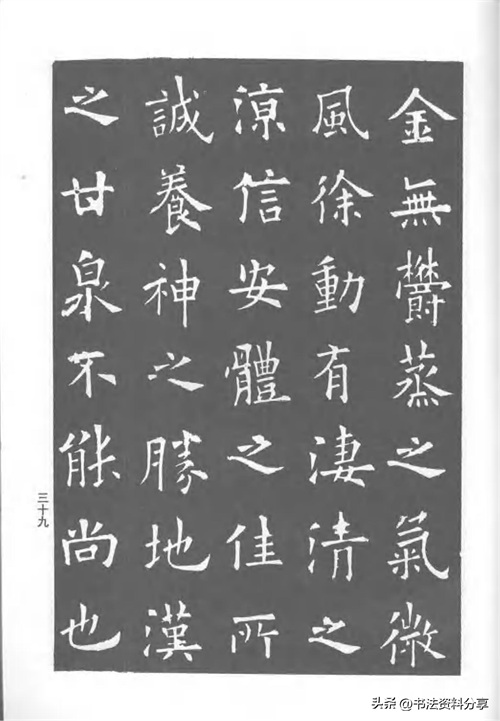 金無欝蒸之氣微
風徐動有淒清之
涼信安體之佳所
誠養神之勝地漢
之甘泉不能尚也
三十九
头条 @书法资料分享